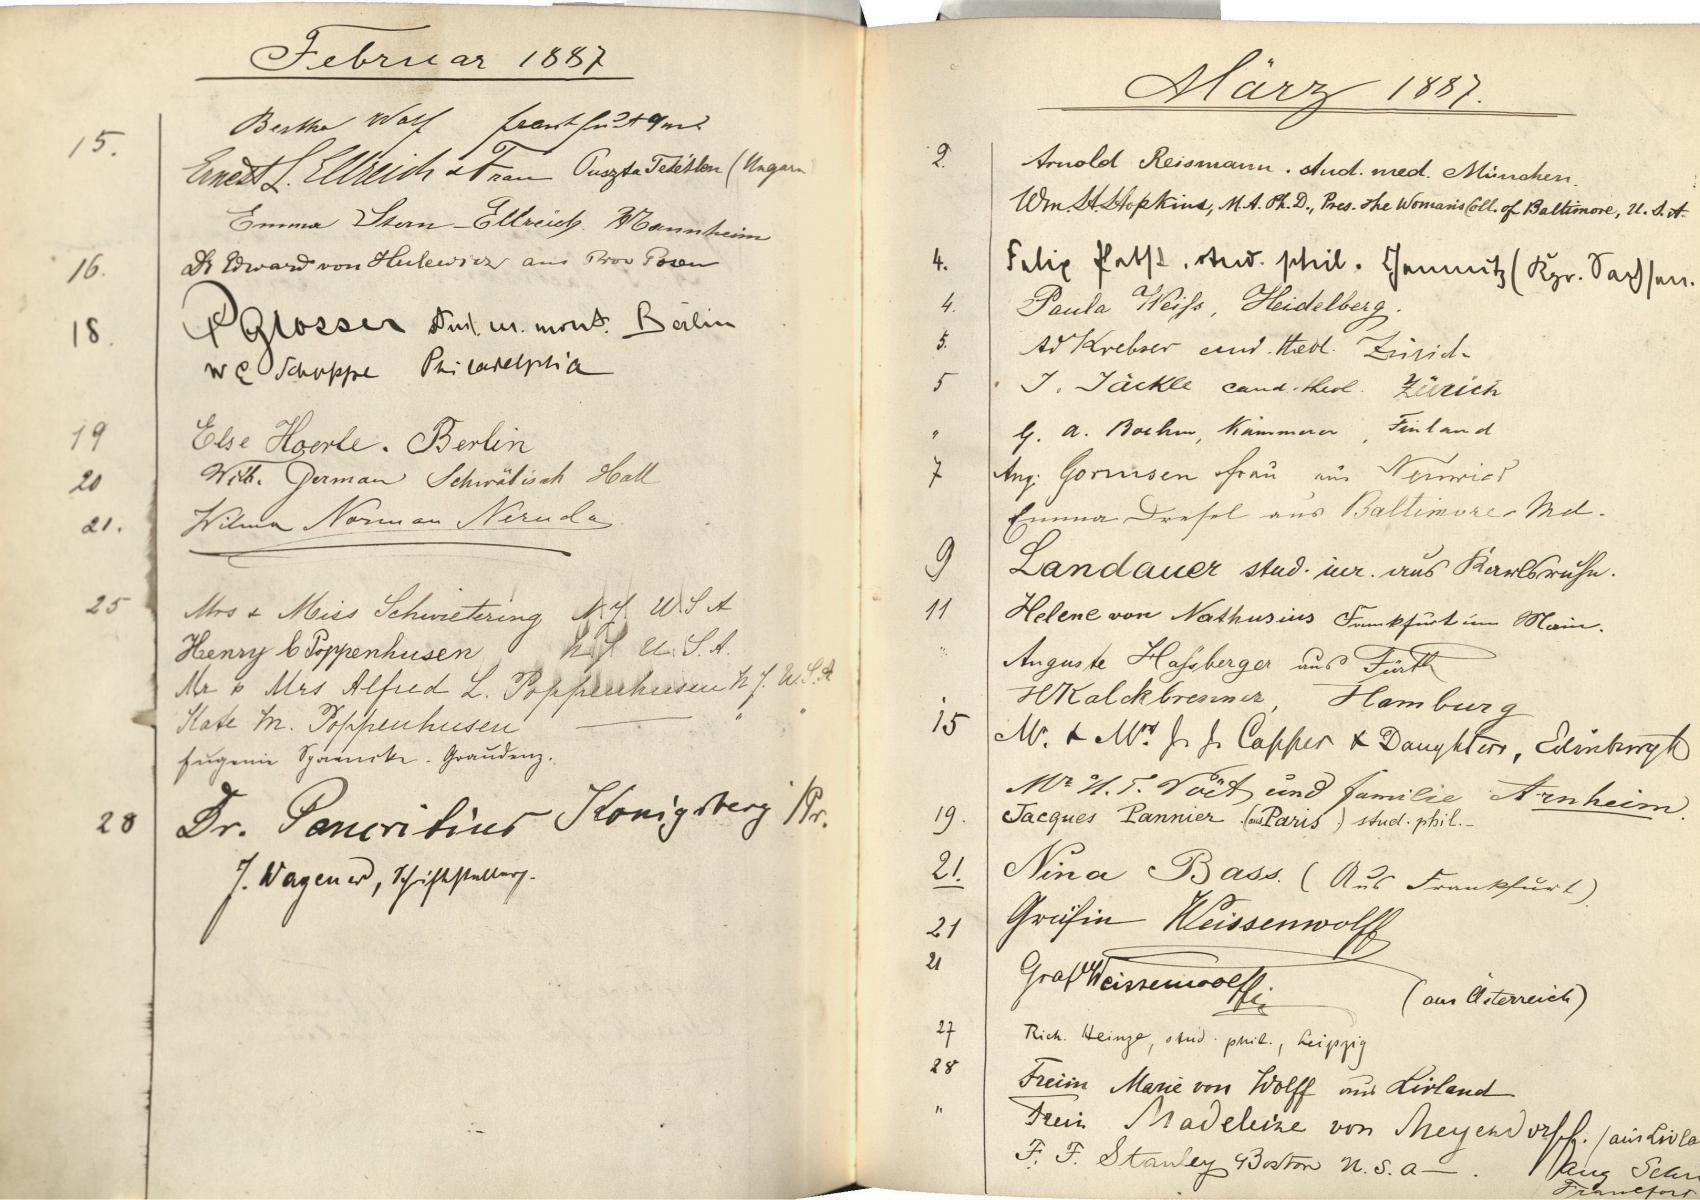 Februar 1887
15. Bertha Wolf Frankfurt a/m
Ernest L. Ellreich & Frau Puszta Tetétlen (Ungarn
Emma Stern-Ellreich Mannheim
16. Dr Edward von Hulewicz aus Prov Posen
18. P Glosser Berlin
W E Schoppe Philadelphia
19 Else Hoerle. Berlin
20 Wilh. German Schwäbisch Hall
21. Wilma Norman Neruda
25 Mrs & Miss Schwietering N.Y. U S A
Henry C Poppenhusen N.Y. U.S.A.
Mr & Mrs Alfred L. Poppenhusen N.Y. U.S.A
Kate M. Poppenhusen — " "
Eugenie Graudenz.
28 Dr. Pancritius Königsberg /Pr.
J. Wagener, Schriftsteller
März 1887.
2. Arnold Reismann. stud. med. München.
Wm. H. Hopkins, M.A. Ph.D., Pres. the Womans Coll. of Baltimore, U.S.A.
4. Felix Pabst, stud. phil. (Kgr. Sachsen.
4. Paula Weiss, Heidelberg.
5. Ad Krebser cand. theol. Zürich
5 J. Jäckle cand. theol. Zürich
" G. A. Boehm, Finland
7 Aug. Gormsen Frau aus Neuwied
Emma Dresel aus Baltimore Md.
9 Landauer stud. iur. aus Karlsruhe.
11 Helene von Nathusius Frankfurt am Main.
" Auguste Hassberger aus Fürth
H Kalckbrenner, Hamburg
15 Mr. & Mrs. J. J. Capper & Daughters, Edinburgh
Mr H. T. Voït und familie Arnheim.
19. Jacques Pannier (aus Paris) stud. phil.-
21. Nina Bass. (Aus Frankfurt)
21 Gräfin Weissenwolff
21 Graf Weissenwolff
(aus Österreich)
27 Rich. Heinze, stud. phil., Leipzig
28 Freiin Marie von Wolff aus Livland
" Freiin Madeleine von Meyendorff. /aus Livla
F. F. Stanley Boston U.S.A—.
Aug Schu
Frankfort